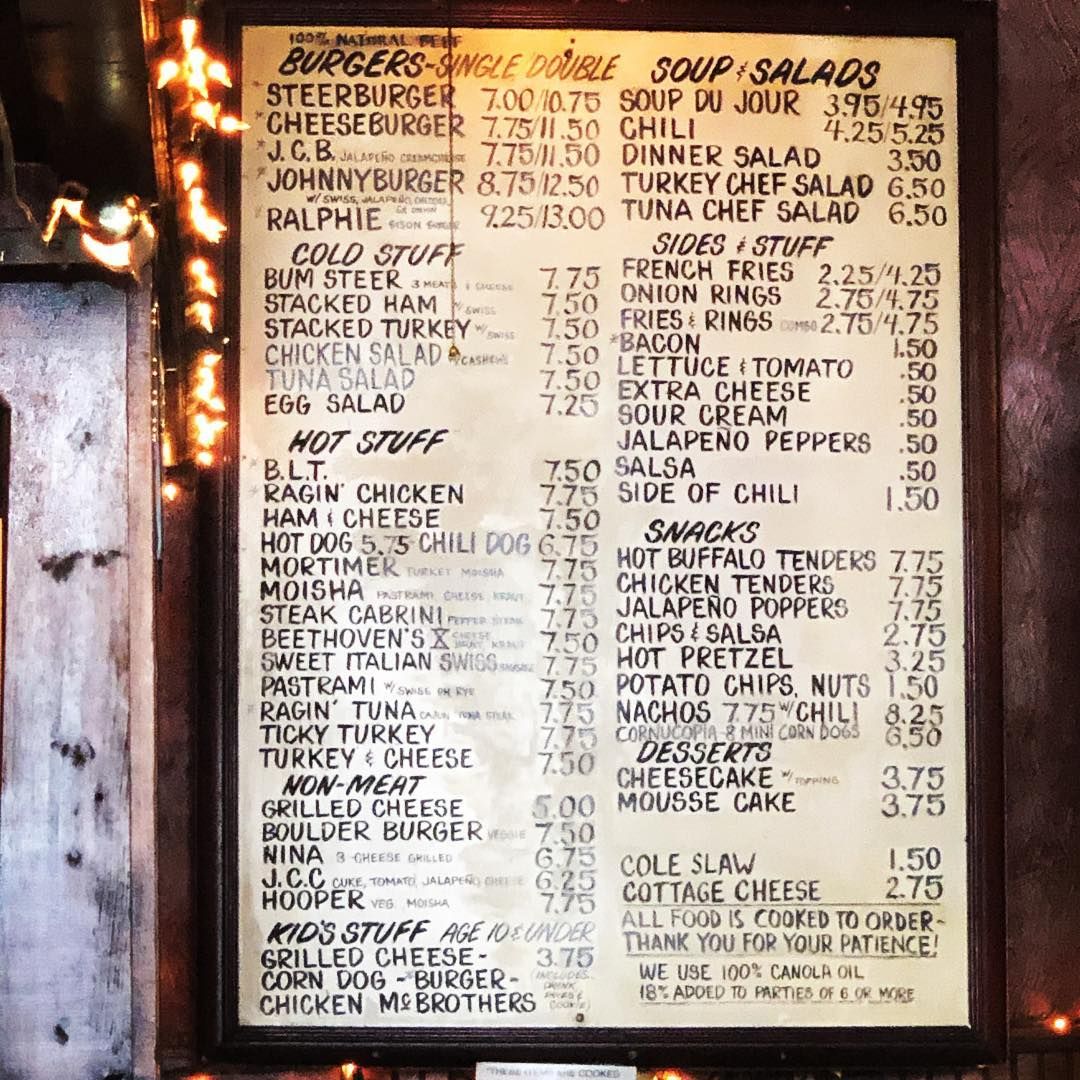 100% NATURAL BEEF
BURGERS-SINGLE/DOUBLE
*STEERBURGER 7.00/10.75
*CHEESEBURGER 7.75/11.50
*J.C.B. JALAPEÑO CREAMCHEESE 7.75/11.50
*JOHNNYBURGER 8.75/12.50
W/ SWISS, JALAPEÑO, CHEDDAR,
RALPHIE BISON BURGER 9.25/13.00
COLD STUFF
BUM STEER 3 MEATS & CHEESE 7.75
STACKED HAM W/ SWISS 7.50
STACKED TURKEY W/ SWISS 7.50
CHICKEN SALAD W/CASHEWS 7.50
TUNA SALAD 7.50
EGG SALAD 7.25
HOT STUFF
*B.L.T. 7.50
RAGIN' CHICKEN 7.75
HAM & CHEESE 7.50
HOT DOG 5.75 CHILI DOG 6.75
MORTIMER TURKEY MOISHA 7.75
MOISHA PASTRAMI CHEESE KRAUT 7.75
STEAK CABRINI PEPPER STEAK 7.75
BEETHOVEN'S X CHEESE BRAT KRAUT 7.50
SWEET ITALIAN SWISS SAUSAGE 7.75
PASTRAMI W/ SWISS ON RYE 7.50
*RAGIN' TUNA CAJUN TUNA STEAK 7.75
TICKY TURKEY 7.75
TURKEY & CHEESE 7.50
NON-MEAT
GRILLED CHEESE 5.00
BOULDER BURGER VEGGIE 7.50
NINA 3-CHEESE GRILLED 6.75
J.C.C CUKE, TOMATO, JALAPEÑO CHEESE 6.25
HOOPER VEG. MOISHA 7.75
KID'S STUFF AGE 10 & UNDER
GRILLED CHEESE- 3.75
CORN DOG -*BURGER- (INCLUDES
CHICKEN McBROTHERS DRINK, FRIES & COOKIE)
SOUP & SALADS
SOUP DU JOUR 3.95/4.95
CHILI 4.25/5.25
DINNER SALAD 3.50
TURKEY CHEF SALAD 6.50
TUNA CHEF SALAD 6.50
SIDES & STUFF
FRENCH FRIES 2.25/4.25
ONION RINGS 2.75/4.75
FRIES & RINGS COMBO 2.75/4.75
*BACON 1.50
LETTUCE & TOMATO .50
EXTRA CHEESE .50
SOUR CREAM .50
JALAPEÑO PEPPERS .50
SALSA .50
SIDE OF CHILI 1.50
SNACKS
HOT BUFFALO TENDERS 7.75
CHICKEN TENDERS 7.75
JALAPEÑO POPPERS 7.75
CHIPS & SALSA 2.75
HOT PRETZEL 3.25
POTATO CHIPS, NUTS 1.50
NACHOS 7.75 W/CHILI 8.25
CORNUCOPIA-8 MINI CORN DOGS 6.50
DESSERTS
CHEESECAKE W/ TOPPING 3.75
MOUSSE CAKE 3.75
COLE SLAW 1.50
COTTAGE CHEESE 2.75
ALL FOOD IS COOKED TO ORDER-
THANK YOU FOR YOUR PATIENCE!
WE USE 100% CANOLA OIL
18% ADDED TO PARTIES OF 6 OR MORE
*THESE ITEMS ARE COOKED